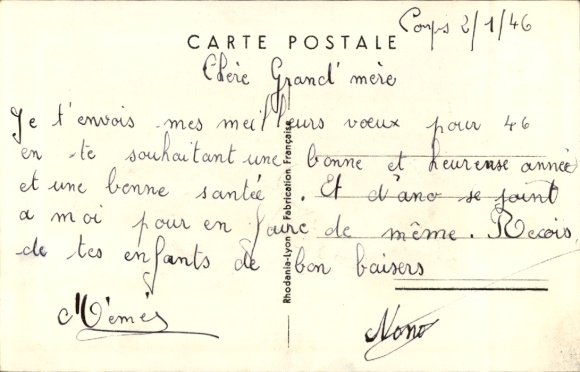 Corps 2/1/46
CARTE POSTALE
Chère Grand'mère
Je t'envois mes meilleurs vœux pour 46
en te souhaitant une bonne et heureuse année
et une bonne santée. Et d'ano se joint
a moi pour en faire de même. Recois,
de tes enfants de bon baisers
M'emés
Nono
Rhodania-Lyon Fabrication Française